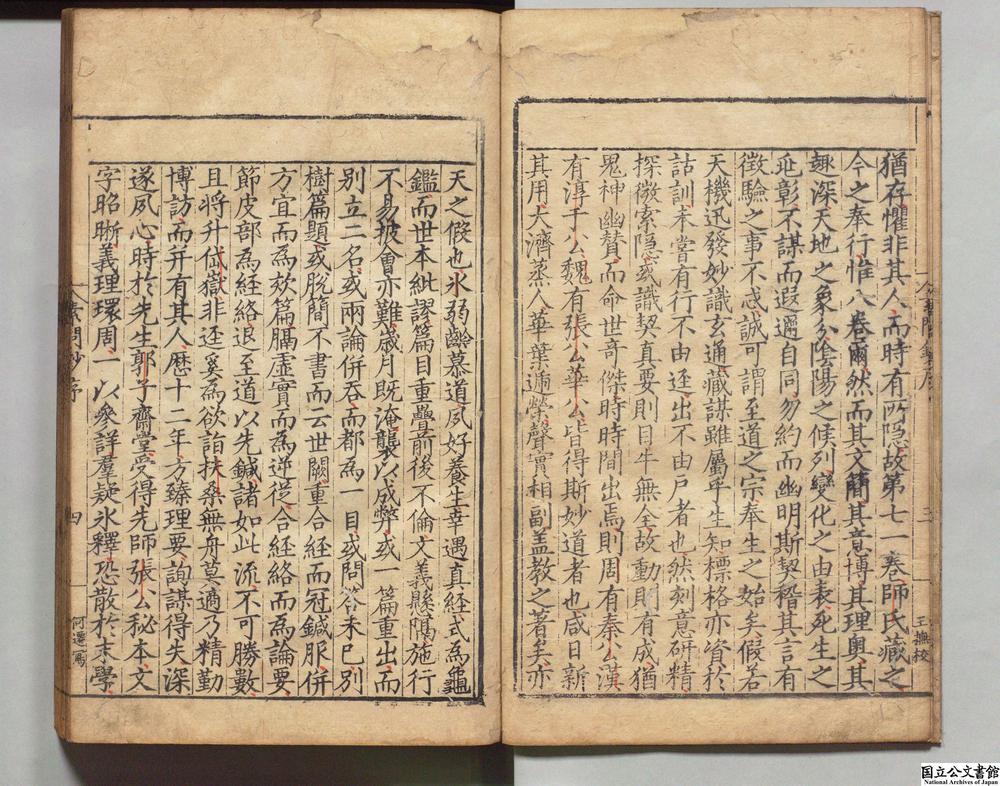 猶存懼非其人而時有所隱故第七一卷師氏藏之
今之奉行惟八卷爾然而其文簡其意博其理奧其
趣深天地之象分陰陽之候列變化之由表死生之
兆彰不謀而遐邇自同勿約而幽明斯契稽其言有
徵驗之事不忒誠可謂至道之宗奉生之始矣假若
天機迅發妙識玄通蕆謀雖屬乎生知標格亦資於
詁訓未嘗有行不由逕出不由戶者也然刻意研精
探微索隱或識契真要則目牛無全故動則有成猶
鬼神幽贊而命世奇傑時時間出焉則周有秦公漢
有淳于公魏有張公華公皆得斯妙道者也咸日新
其用大濟蒸人華葉遞榮聲實相副蓋教之著矣亦
三
王撫校
天之假也氷弱齡慕道夙好養生幸遇真経式為龜
鑑而世本紕謬篇目重疊前後不倫文義懸隔施行
不易披會亦難歲月既淹襲以成弊或一篇重出而
別立二名或兩論併吞而都為一目或問答未已別
樹篇題或脫簡不書而云世闕重合経而冠鍼服併
方宜而為欬篇隔虛實而為逆從合経絡而為論要
節皮部為経絡退至道以先鍼諸如此流不可勝數
且將升岱嶽非逕奚為欲詣扶桑無舟莫適乃精勤
博訪而并有其人歷十二年方臻理要詢謀得失深
遂夙心時於先生郭子齋堂受得先師張公秘本文
字昭晰義理環周一以參詳羣疑氷釋恐散於末學
素問鈔序
四
何遷寫
国立公文書館
National Archives of Japan